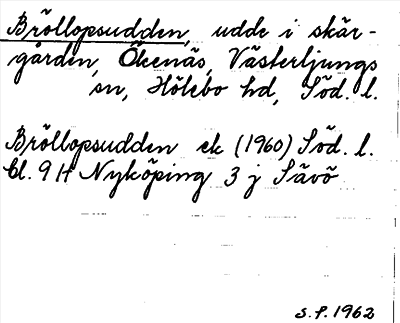 Bröllopsudden, udde i skär-
gården, Ökenäs, Västerljungs
sn, Hölebo hd, Söd. l.
Bröllopsudden ek (1960) Söd. l.
bl. 9 H Nyköping 3 j Sävö
S.F. 1962